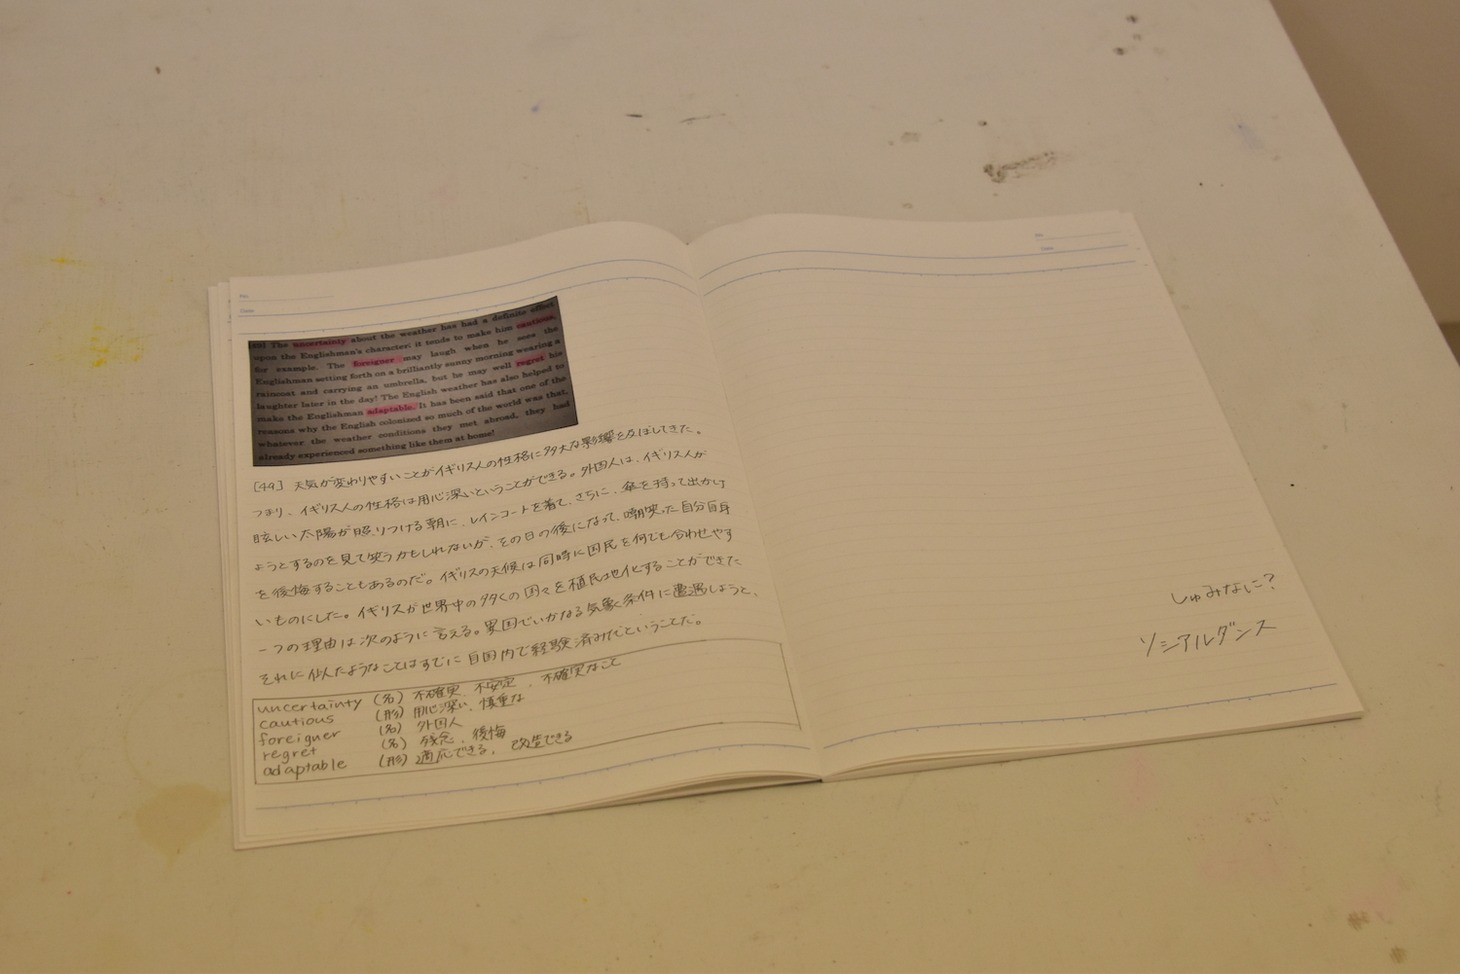 No.
Date
The uncertainty about the weather has had a definite effect
upon the Englishman's character; it tends to make him cautious,
for example. The foreigner may laugh when he sees the
Englishman setting forth on a brilliantly sunny morning wearing a
raincoat and carrying an umbrella, but he may well regret his
laughter later in the day! The English weather has also helped to
make the Englishman adaptable. It has been said that one of the
reasons why the English colonized so much of the world was that,
whatever the weather conditions they met abroad, they had
already experienced something like them at home!
[49] 天気が変わりやすいことがイギリス人の性格に多大な影響を及ぼしてきた。
つまり、イギリス人の性格は用心深いということができる。外国人は、イギリス人が
眩しい太陽が照りつける朝に、レインコートを着て、さらに、傘を持って出かけ
ようとするのを見て笑うかもしれないが、その日の後になって、嘲笑った自分自身
を後悔することもあるのだ。イギリスの天候は同時に国民を何でも合わせやす
いものにした。イギリスが世界中の多くの国々を植民地化することができた
一つの理由は次のように言える。異国でいかなる気象条件に遭遇しようと、
それに似たようなことはすでに自国内で経験済みだということだ。
uncertainty (名) 不確実、不安定、不確実なこと
cautious (形) 用心深い、慎重な
foreigner (名) 外国人
regret (名) 残念、後悔
adaptable (形) 適応できる、改造できる
No.
Date
しゅみなに?
ソシアルダンス